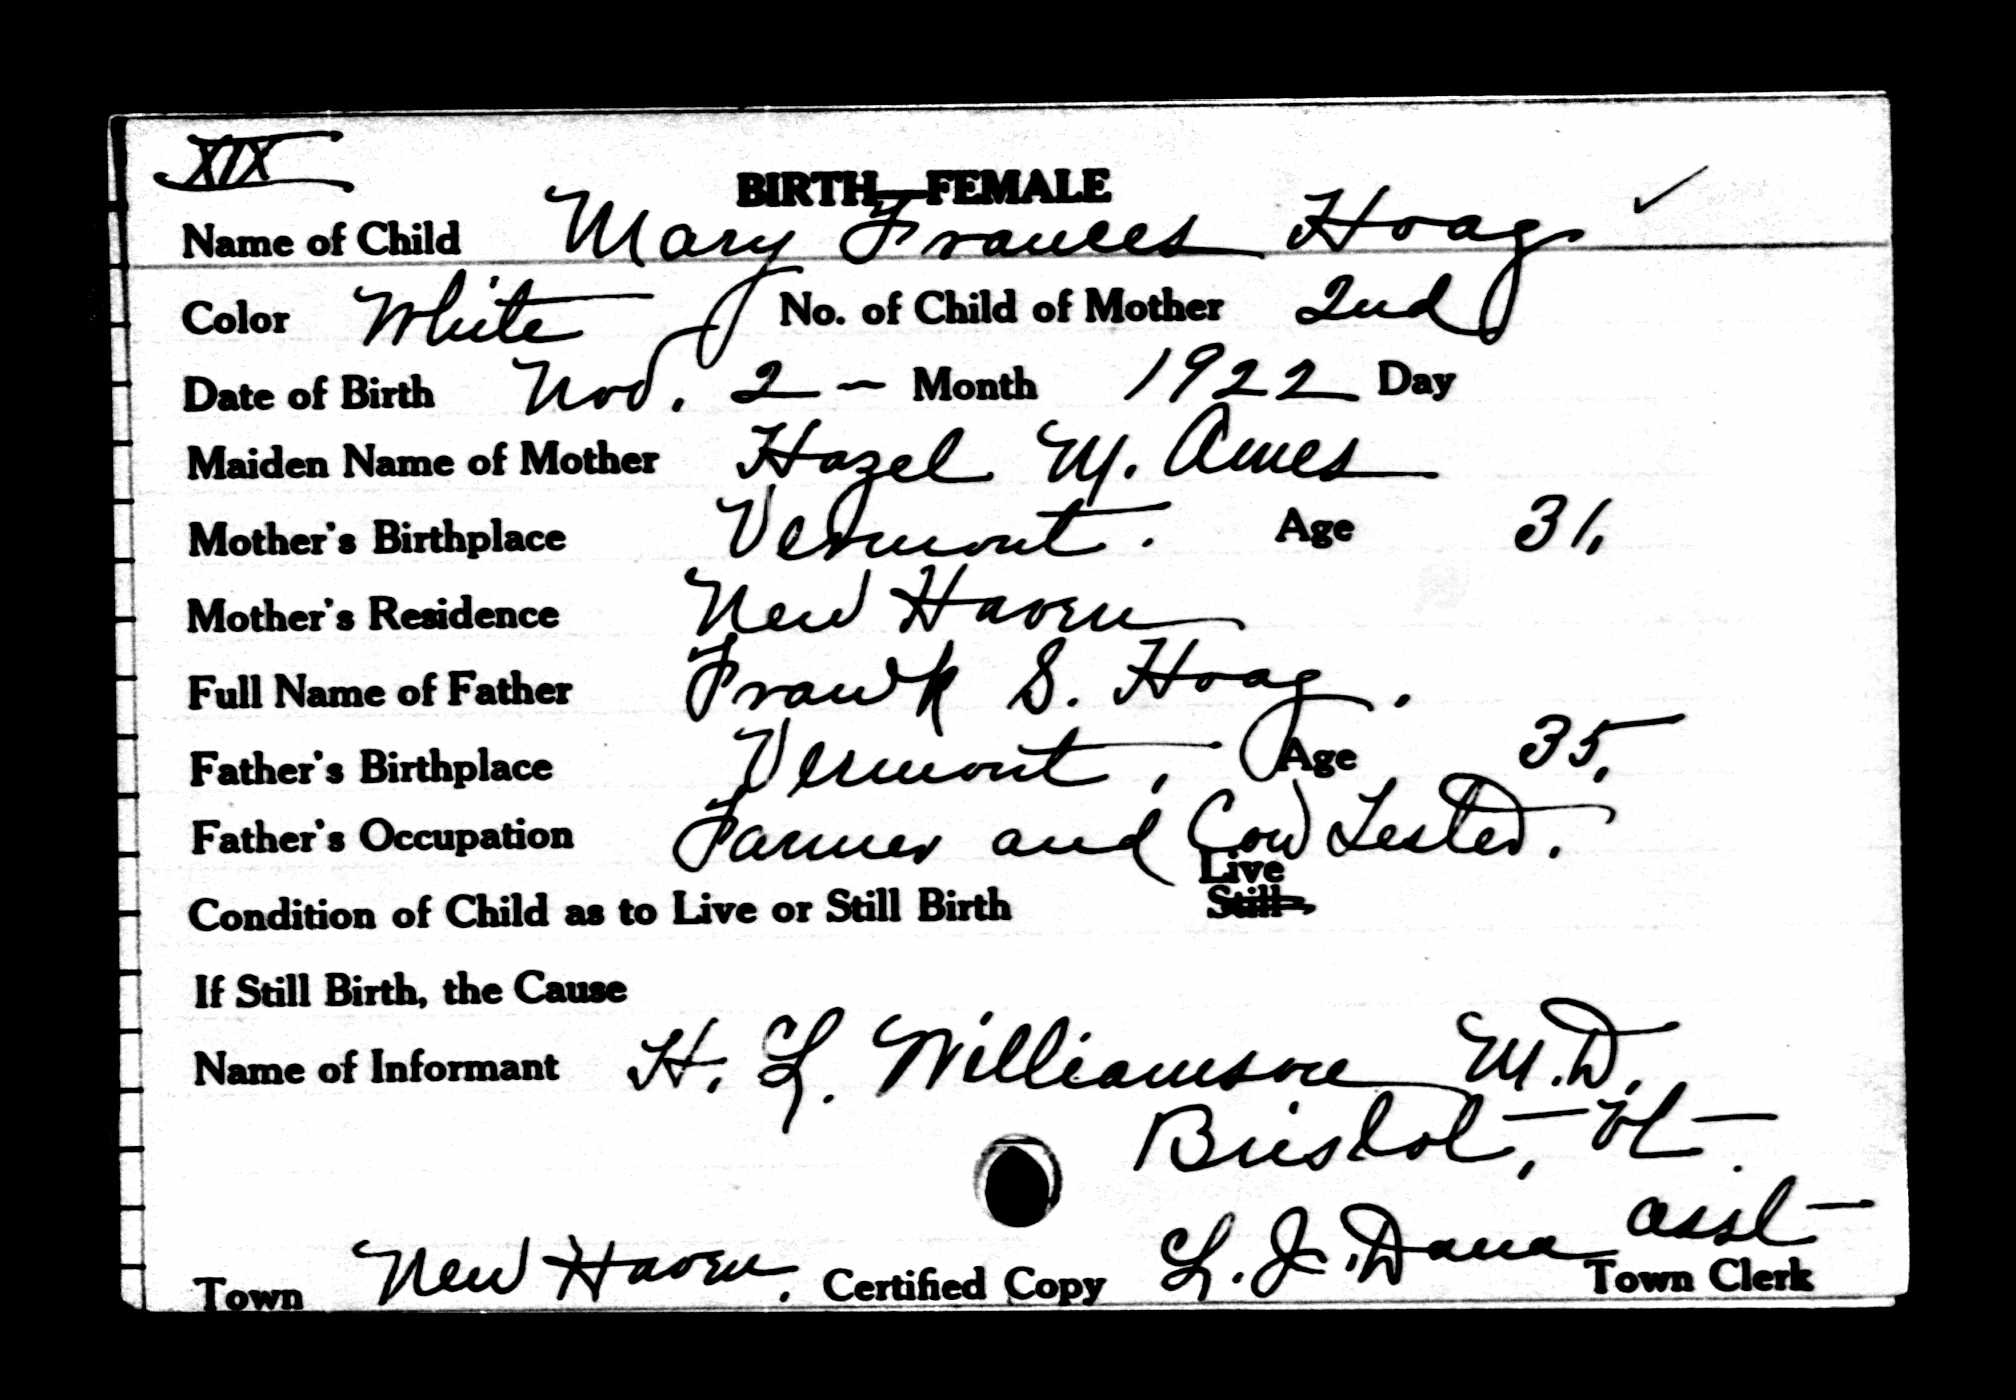 XIX
BIRTH—FEMALE
Name of Child Mary Frances Hoag ✓
Color White No. of Child of Mother 2nd
Date of Birth Nov. 2 – Month 1922 Day
Maiden Name of Mother Hazel M. Ames
Mother's Birthplace Vermont. Age 31.
Mother's Residence New Haven
Full Name of Father Frank S. Hoag.
Father's Birthplace Vermont. Age 35.
Father's Occupation Farmer and Cow Tester.
Live
Condition of Child as to Live or Still Birth Still
If Still Birth, the Cause
Name of Informant H. L. Williamson M.D.
Bristol, Vt.
asst
Town New Haven. Certified Copy L. J. Dana Town Clerk